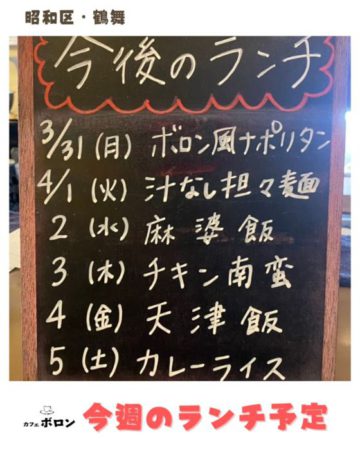 昭和区・鶴舞
今後のランチ
3/31(月) ボロン風ナポリタン
4/1(火) 汁なし担々麺
2(水) 麻婆飯
3(木) チキン南蛮
4(金) 天津飯
5(土) カレーライス
カフェ ボロン 今週のランチ予定